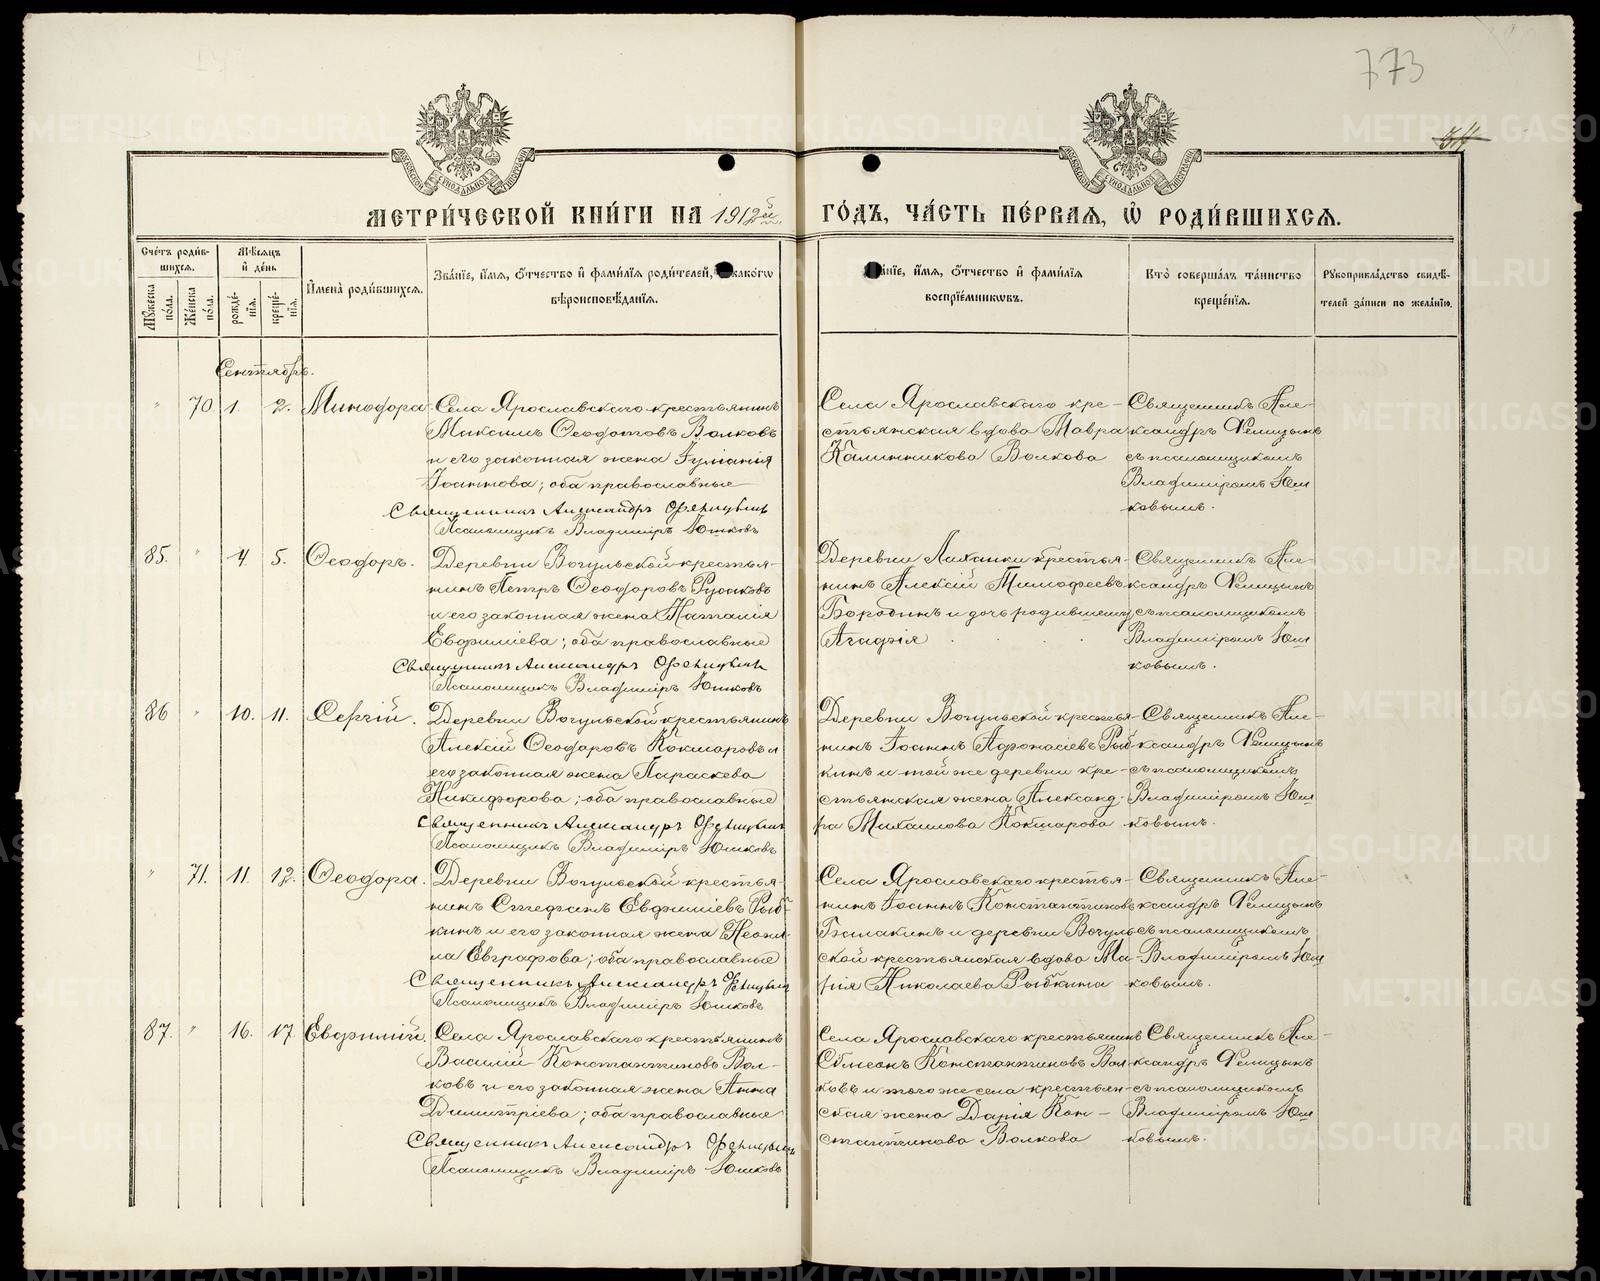 773
34
МОСКОВСКОЙ СѴНОДАЛЬНОЙ ТИПОГРАФІИ
МОСКОВСКОЙ СѴНОДАЛЬНОЙ ТИПОГРАФІИ
МЕТРИ́ЧЕСКОЙ КНИ́ГИ НА 1912й ГО́ДЪ, ЧА́СТЬ ПЕ́РВАЯ, Ѡ҆ РОДИ́ВШИХСЯ.
Сче́тъ роди́в-
шихся.
Мꙋ́жеска по́ла.
Же́нска по́ла.
Мѣ́сяцъ
и҆ де́нь
рожде́-
нїя.
креще́-
нїя.
И҆мена̀ роди́вшихся.
Зва́нїе, и҆́мя, ѻ҆́тчество и҆ фами́лїя роди́телей, како́гѡ
вѣроисповѣ́данїя.
а́нїе, и҆́мя, ѻ҆́тчество и҆ фами́лїя
воспрїе́мникѡвъ.
Кто̀ соверша́лъ та́инство
креще́нїя.
Рꙋкоприкла́дство свидѣ́-
телей за́писи по жела́нїю.
Сентябрь.
" 70 1. 2. Минодора
Села Ярославскаго крестьянинъ
Максимъ Ѳеодотовъ Волковъ
и его законная жена Іуліанія
Іоаннова; оба православные
Священникъ Александръ Фелицынъ
Псаломщикъ Владиміръ Юшковъ
Села Ярославскаго кре-
стьянская вдова Мавра
Калинникова Волкова
Священникъ Але-
ксандръ Фелицынъ
съ псаломщикомъ
Владиміромъ Юш
ковымъ.
85. " 4. 5. Ѳеодоръ.
Деревни Вогульской крестья-
нинъ Петръ Ѳеодоровъ Русаковъ
и его законная жена Наталія
Евфиміева; оба православные
Священникъ Александръ Фелицынъ
Псаломщикъ Владиміръ Юшковъ
Деревни Лиханки крестья-
нинъ Алексій Тимофеевъ
Бородинъ и дочь родившему
Агафія
Священникъ Але-
ксандръ Фелицынъ
съ псаломщикомъ
Владиміромъ Юш
ковымъ.
86 " 10. 11. Сергій.
Деревни Вогульской крестьянинъ
Алексій Ѳеодоровъ Кокшаровъ и
его законная жена Параскева
Никифорова; оба православные
Священникъ Александръ Фелицынъ
Псаломщикъ Владиміръ Юшковъ
Деревни Вогульской крестья-
нинъ Іоаннъ Афонасіевъ Рыб
кинъ и той же деревни кре-
стьянская жена Александ-
ра Михаилова Кокшарова
Священникъ Але-
ксандръ Фелицынъ
съ псаломщикомъ
Владиміромъ Юш
ковымъ.
" 71. 11. 12. Ѳеодора.
Деревни Вогульской крестья-
нинъ Стефанъ Евфиміевъ Рыб-
кинъ и его законная жена Неони-
ла Евграфова; оба православные
Священникъ Александръ Фелицынъ
Псаломщикъ Владиміръ Юшковъ
Села Ярославскаго крестья-
нинъ Іоаннъ Константиновъ
и деревни Вогуль
ской крестьянская вдова Ма-
рія Николаева Рыбкина
Священникъ Але-
ксандръ Фелицынъ
съ псаломщикомъ
Владиміромъ Юш
ковымъ.
87. " 16. 17. Евфимій.
Села Ярославскаго крестьянинъ
Василій Константиновъ Вол-
ковъ и его законная жена Анна
Димитріева; оба православные
Священникъ Александръ Фелицынъ
Псаломщикъ Владиміръ Юшковъ
Села Ярославскаго крестьянинъ
Сѵмеонъ Константиновъ Вол
ковъ и того же села крестьян-
ская жена Дарія Кон-
стантинова Волкова
Священникъ Але-
ксандръ Фелицынъ
съ псаломщикомъ
Владиміромъ Юш
ковымъ.